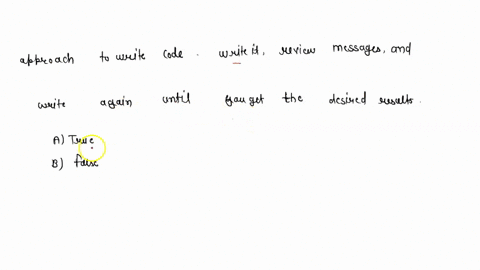 approach to write code. write it, review messages, and
write again until you get the desired results.
A) True
B) false